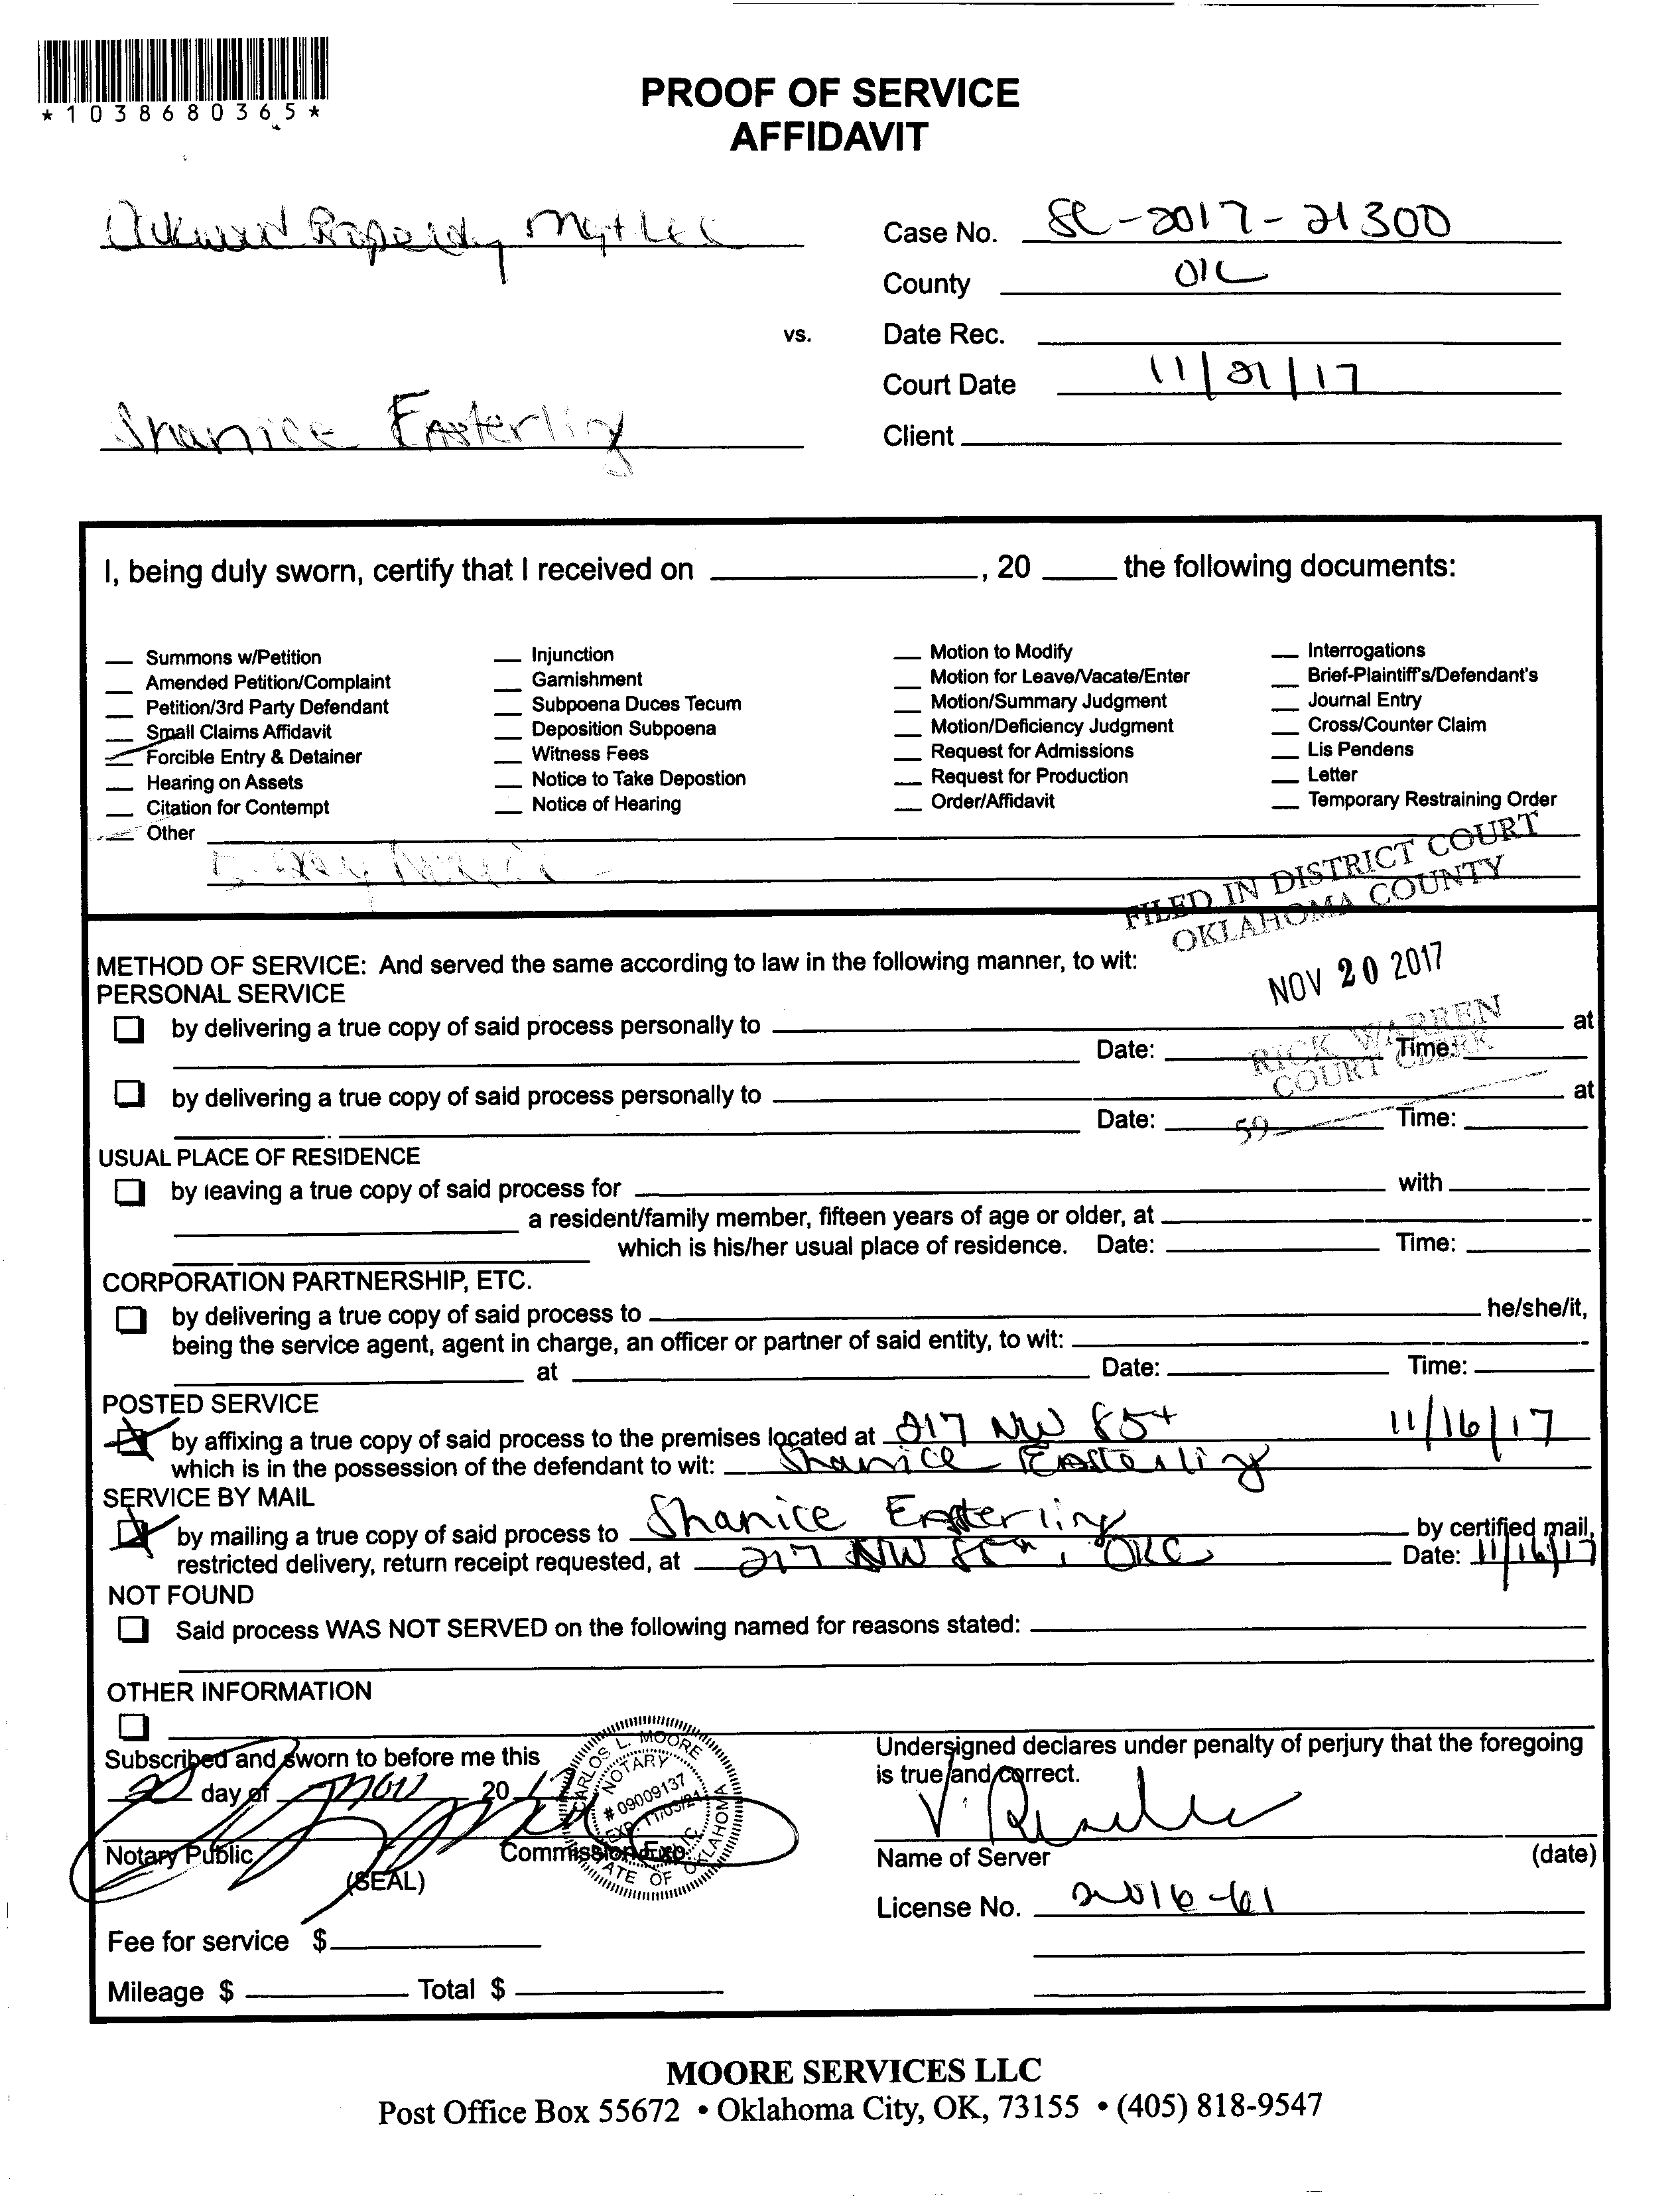 *1038680365*
PROOF OF SERVICE
AFFIDAVIT
Mgt LLC
Case No. SC-2017-21300
County OK
vs.
Date Rec.
Court Date 11/21/17
Shanice Easterling
Client
I, being duly sworn, certify that I received on , 20 the following documents:
Summons w/Petition
Amended Petition/Complaint
Petition/3rd Party Defendant
Small Claims Affidavit
Forcible Entry & Detainer
Hearing on Assets
Citation for Contempt
Other
5 day Notice
Injunction
Garnishment
Subpoena Duces Tecum
Deposition Subpoena
Witness Fees
Notice to Take Depostion
Notice of Hearing
Motion to Modify
Motion for Leave/Vacate/Enter
Motion/Summary Judgment
Motion/Deficiency Judgment
Request for Admissions
Request for Production
Order/Affidavit
Interrogations
Brief-Plaintiff's/Defendant's
Journal Entry
Cross/Counter Claim
Lis Pendens
Letter
Temporary Restraining Order
FILED IN DISTRICT COURT
OKLAHOMA COUNTY
NOV 20 2017
RICK WARREN
COURT CLERK
59
METHOD OF SERVICE: And served the same according to law in the following manner, to wit:
PERSONAL SERVICE
by delivering a true copy of said process personally to at
Date: Time:
by delivering a true copy of said process personally to at
Date: Time:
USUAL PLACE OF RESIDENCE
by leaving a true copy of said process for with
a resident/family member, fifteen years of age or older, at
which is his/her usual place of residence. Date: Time:
CORPORATION PARTNERSHIP, ETC.
by delivering a true copy of said process to he/she/it,
being the service agent, agent in charge, an officer or partner of said entity, to wit:
at Date: Time:
POSTED SERVICE
by affixing a true copy of said process to the premises located at 217 NW 85th 11/16/17
which is in the possession of the defendant to wit: Shanice Easterling
SERVICE BY MAIL
by mailing a true copy of said process to Shanice Easterling by certified mail,
restricted delivery, return receipt requested, at 217 NW 85th, OKC Date: 11/16/17
NOT FOUND
Said process WAS NOT SERVED on the following named for reasons stated:
OTHER INFORMATION
Subscribed and sworn to before me this
20 day of Nov 2017
Notary Public
(SEAL)
Commission Exp.
CARLOS L. MOORE
NOTARY
# 09009137
EXP. 11/03/21
PUBLIC
STATE OF OKLAHOMA
Undersigned declares under penalty of perjury that the foregoing
is true and correct.
Name of Server (date)
License No. 2016-61
Fee for service $
Mileage $ Total $
MOORE SERVICES LLC
Post Office Box 55672 • Oklahoma City, OK, 73155 • (405) 818-9547